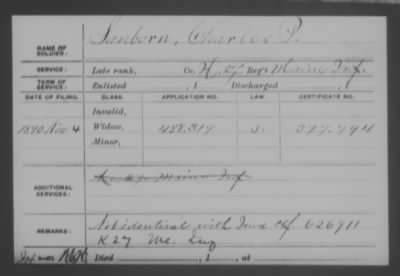 NAME OF SOLDIER: Sanborn, Charles P.
SERVICE: Late rank, Co. K, 27 Reg't Maine Inf.
TERM OF SERVICE: Enlisted , 1 Discharged , 1
DATE OF FILING. CLASS. APPLICATION NO. LAW. CERTIFICATE NO.
Invalid,
1890 Nov 4 Widow, 488,319
Minor,
ADDITIONAL SERVICES: K. 27 Maine Inf
REMARKS: Not identical with Inv'd Ctf 626911
K 27 Me. Inf
Died , 1 , at